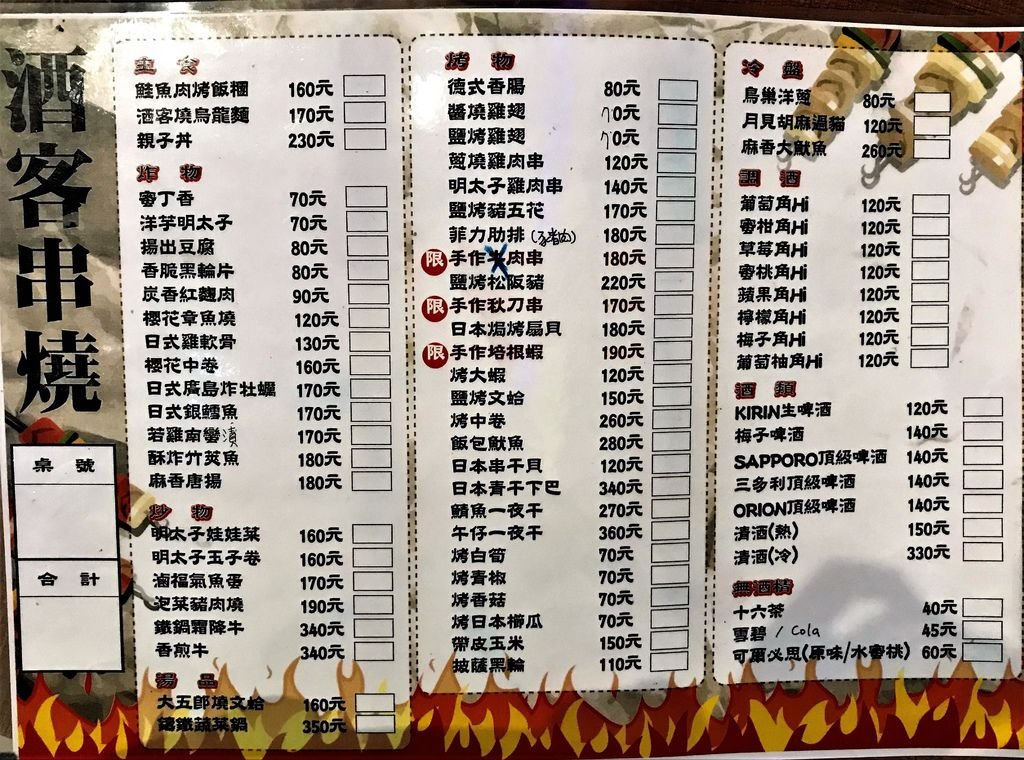 酒客串燒
桌號
合計
主食
鮭魚肉烤飯糰 160元
酒客燒烏龍麵 170元
親子丼 230元
炸物
蜜丁香 70元
洋芋明太子 70元
揚出豆腐 80元
香脆黑輪片 80元
炭香紅麴肉 90元
櫻花章魚燒 120元
日式雞軟骨 130元
櫻花中卷 160元
日式廣島炸牡蠣 170元
日式銀鱈魚 170元
若雞南蠻漬 170元
酥炸竹筴魚 180元
麻香唐揚 180元
炒物
明太子娃娃菜 160元
明太子玉子卷 160元
滷福氣魚蛋 170元
泡菜豬肉燒 190元
鐵鍋霜降牛 340元
香煎牛 340元
湯品
大五郎燒文蛤 160元
鑄鐵蔬菜鍋 350元
烤物
德式香腸 80元
醬燒雞翅 70元
鹽烤雞翅 70元
蔥燒雞肉串 120元
明太子雞肉串 140元
鹽烤豬五花 170元
菲力肋排(豬肉) 180元
限 手作肉串 180元
鹽烤松阪豬 220元
限 手作秋刀串 170元
日本焗烤扇貝 180元
限 手作培根蝦 190元
烤大蝦 120元
鹽烤文蛤 150元
烤中卷 260元
飯包魷魚 280元
日本串干貝 120元
日本青干下巴 340元
鯖魚一夜干 270元
午仔一夜干 360元
烤白筍 70元
烤青椒 70元
烤香菇 70元
烤日本櫛瓜 70元
帶皮玉米 150元
披薩黑輪 110元
冷盤
鳥巢洋蔥 80元
月見胡麻過貓 120元
麻香大魷魚 260元
調酒
葡萄角Hi 120元
蜜柑角Hi 120元
草莓角Hi 120元
蜜桃角Hi 120元
蘋果角Hi 120元
檸檬角Hi 120元
梅子角Hi 120元
葡萄柚角Hi 120元
酒類
KIRIN生啤酒 120元
梅子啤酒 140元
SAPPORO頂級啤酒 140元
三多利頂級啤酒 140元
ORION頂級啤酒 140元
清酒(熱) 150元
清酒(冷) 330元
無酒精
十六茶 40元
雪碧 / Cola 45元
可爾必思(原味/水蜜桃) 60元